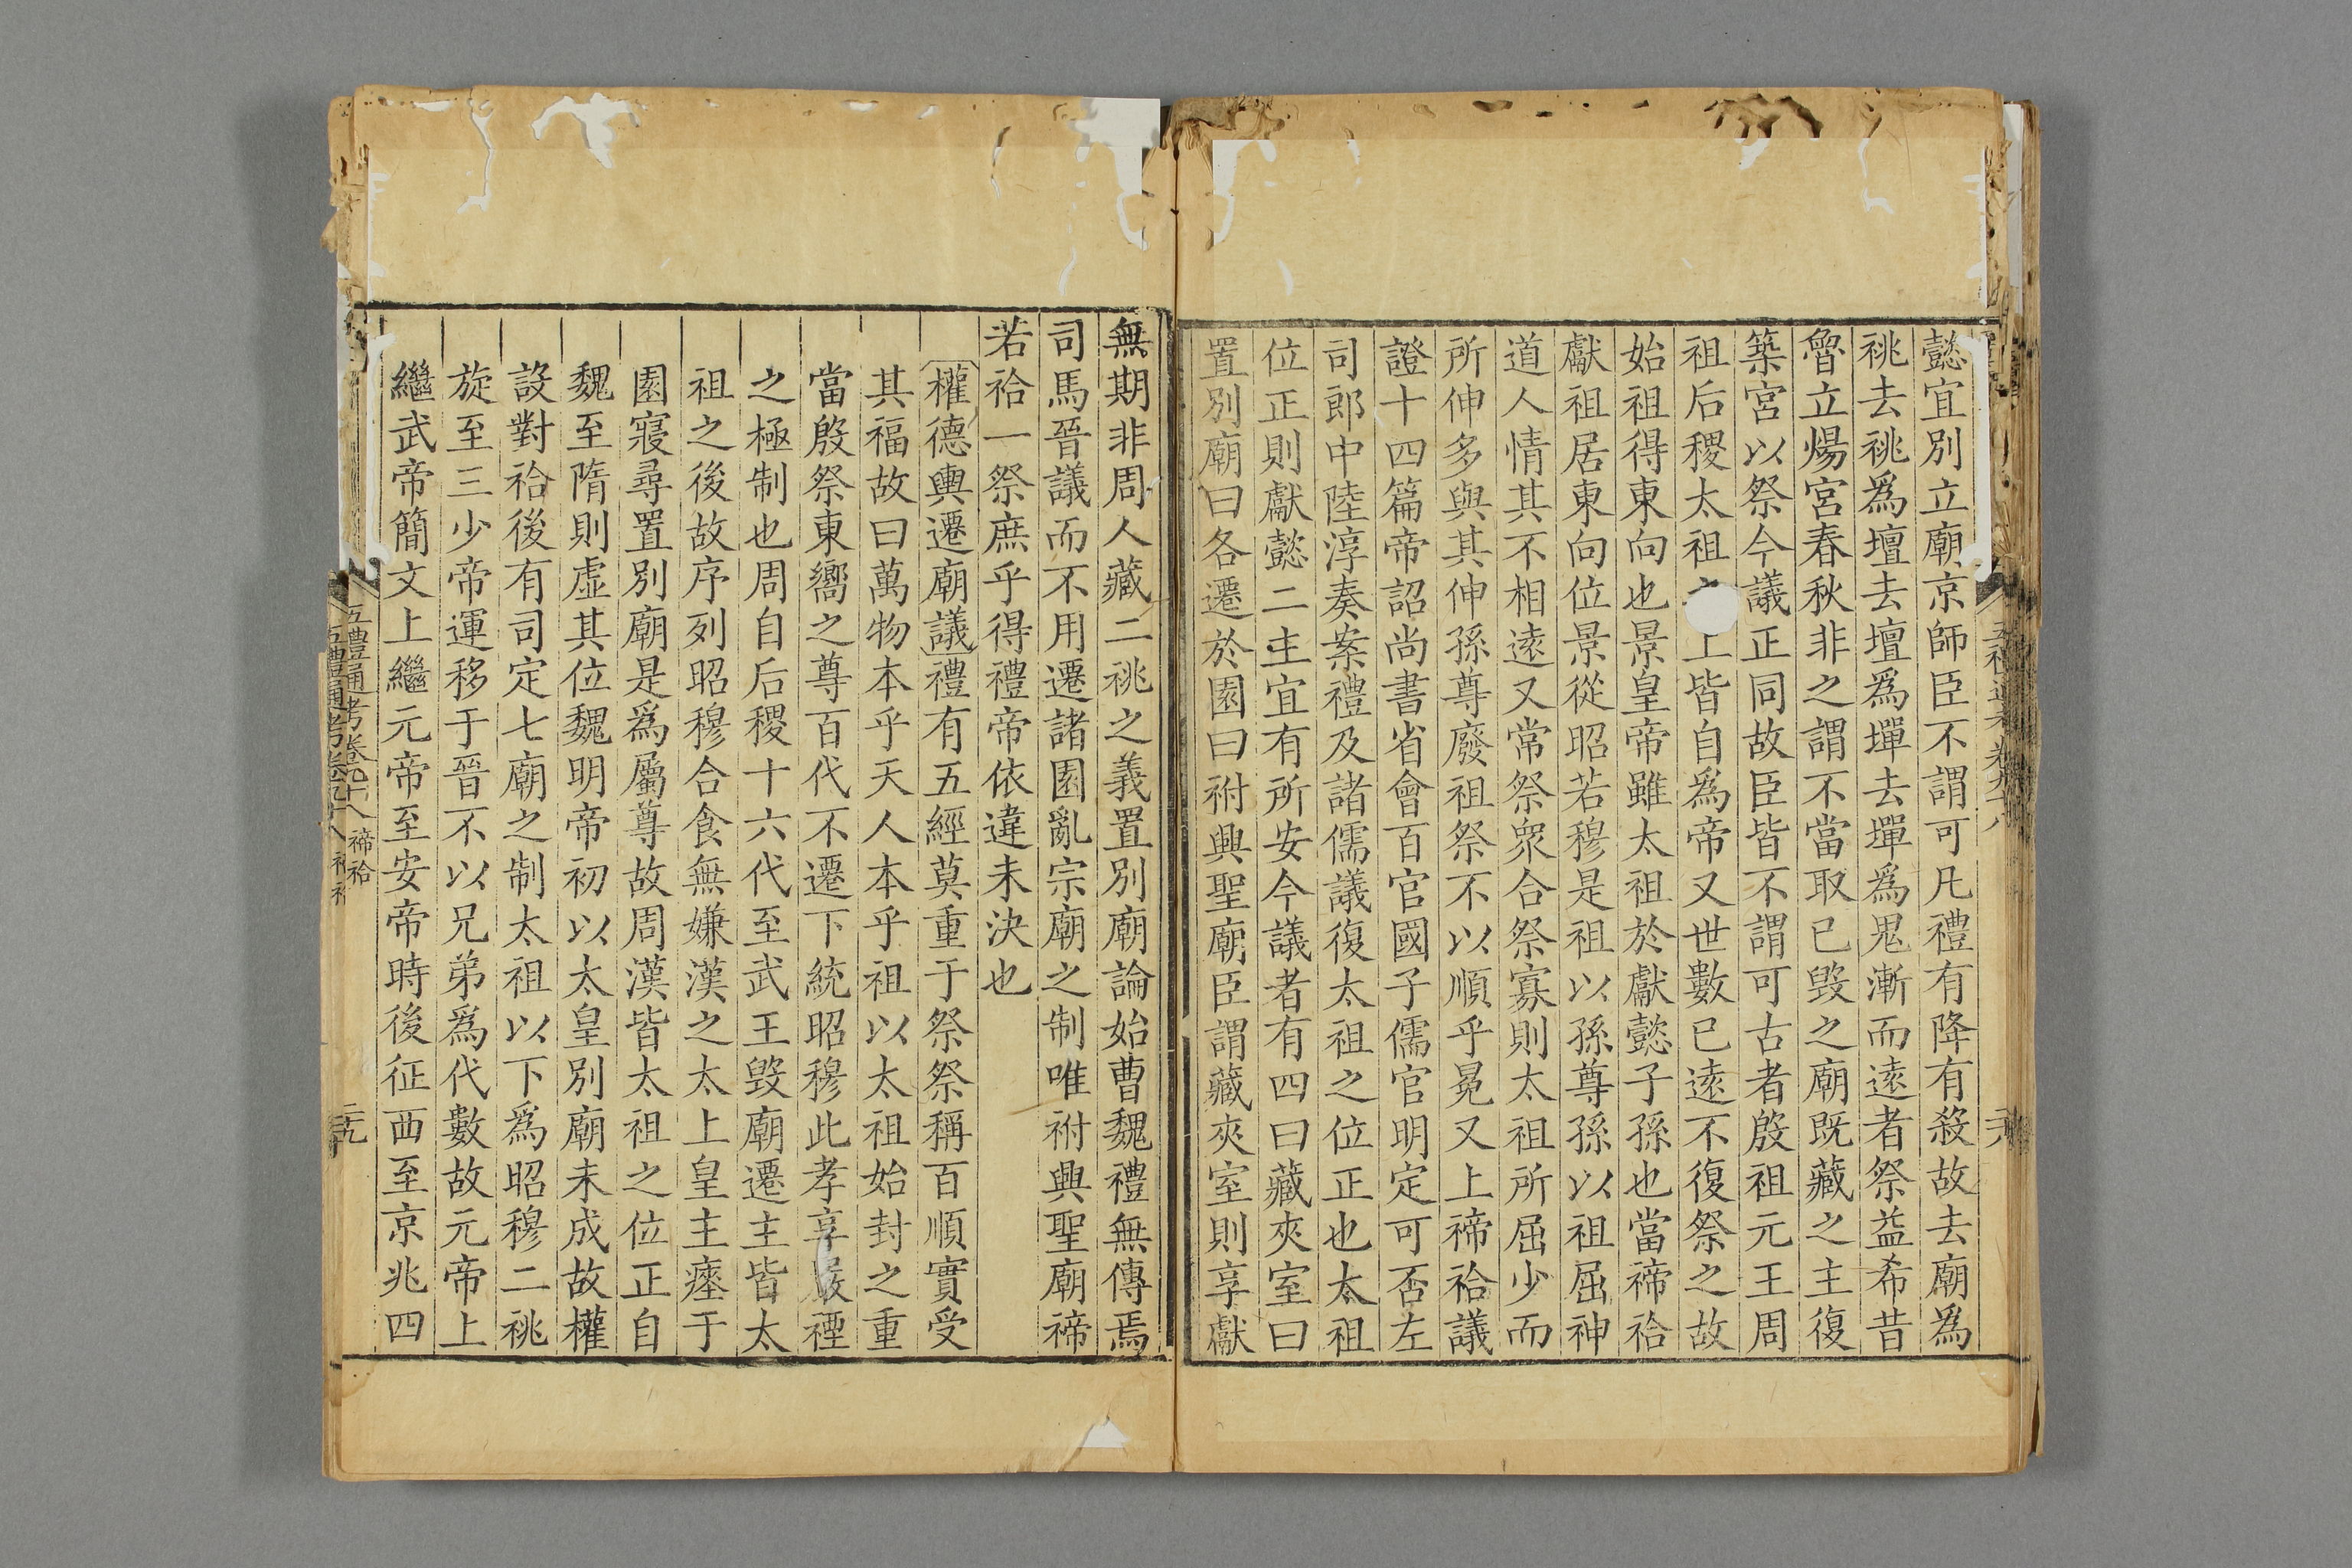 懿宜別立廟京師臣不謂可凡禮有降有殺故去廟爲
祧去祧爲壇去壇爲墠去墠爲鬼漸而遠者祭益希昔
魯立煬宮春秋非之謂不當取已毀之廟既藏之主復
築宮以祭今議正同故臣皆不謂可古者殷祖元王周
祖后稷太祖上皆自爲帝又世數已遠不復祭之故
始祖得東向也景皇帝雖太祖於獻懿子孫也當禘祫
獻祖居東向位景從昭若穆是祖以孫尊孫以祖屈神
道人情其不相遠又常祭衆合祭寡則太祖所屈少而
所伸多與其伸孫尊廢祖祭不以順乎冕又上禘祫議
證十四篇帝詔尚書省會百官國子儒官明定可否左
司郎中陸淳奏案禮及諸儒議復太祖之位正也太祖
位正則獻懿二主宜有所安今議者有四曰藏夾室曰
置別廟曰各遷於園曰祔興聖廟臣謂藏夾室則享獻
無期非周人藏二祧之義置別廟論始曹魏禮無傳焉
司馬晉議而不用遷諸園亂宗廟之制唯祔興聖廟禘
若祫一祭庶乎得禮帝依違未決也
權德輿遷廟議禮有五經莫重于祭祭稱百順實受
其福故曰萬物本乎天人本乎祖以太祖始封之重
當殷祭東嚮之尊百代不遷下統昭穆此孝享嚴禋
之極制也周自后稷十六代至武王毀廟遷主皆太
祖之後故序列昭穆合食無嫌漢之太上皇主瘞于
園寢尋置別廟是爲屬尊故周漢皆太祖之位正自
魏至隋則虛其位魏明帝初以太皇別廟未成故權
設對祫後有司定七廟之制太祖以下爲昭穆二祧
旋至三少帝運移于晉不以兄弟爲代數故元帝上
繼武帝簡文上繼元帝至安帝時後征西至京兆四
五禮通考卷九十八 禘祫
二十九